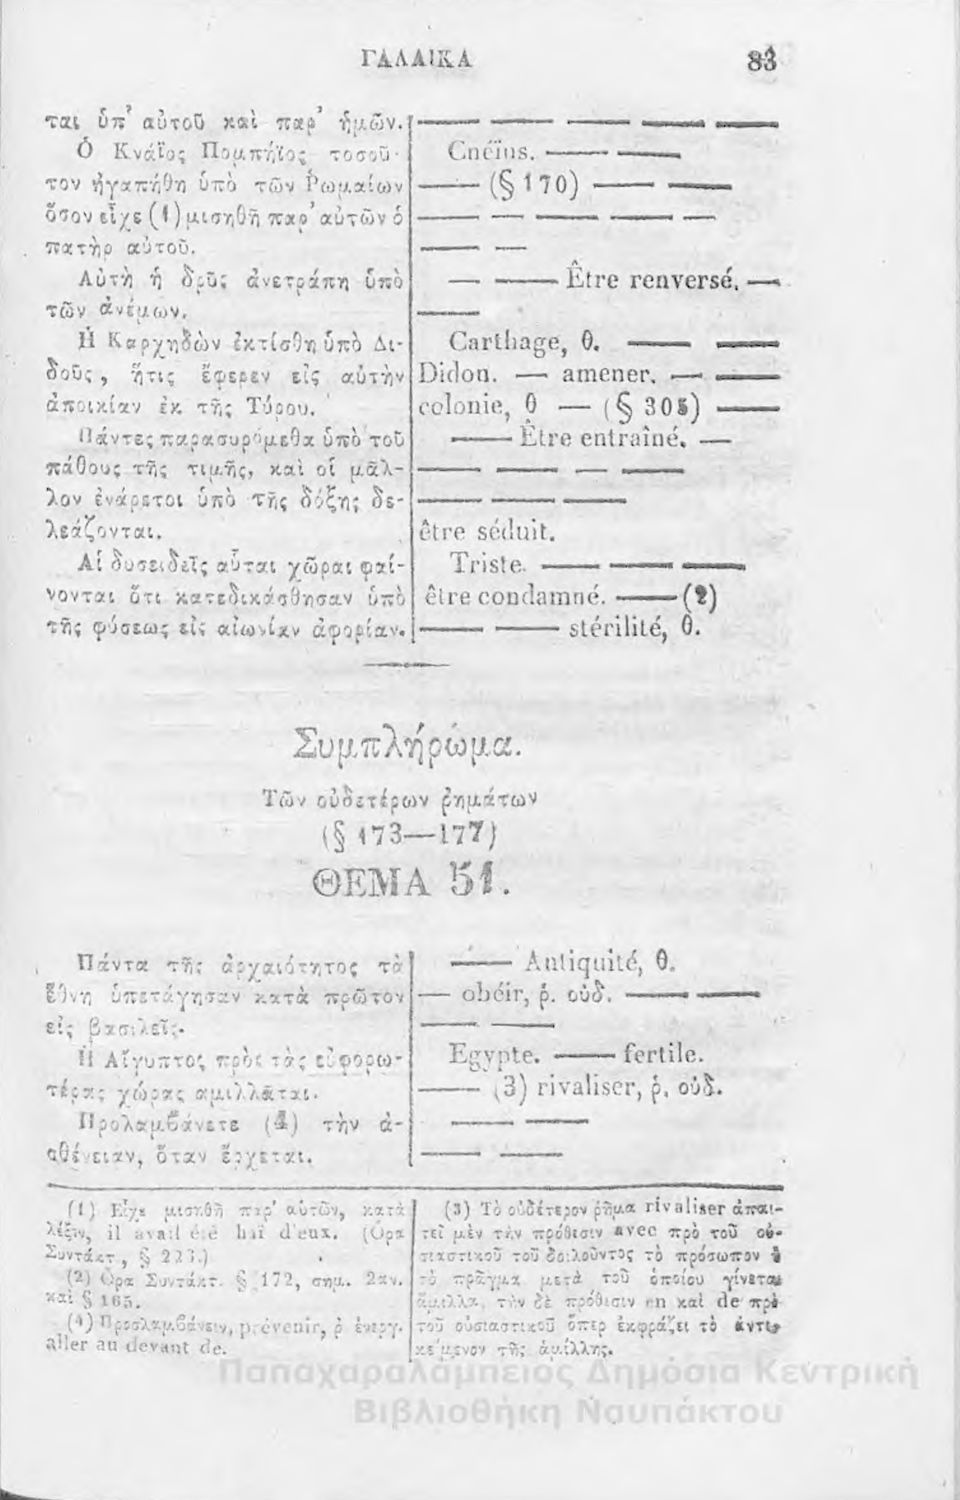 ΓΑΛΛΙΚΑ 83
ται ὑπ' αὐτοῦ καὶ παρ' ἡμῶν.
Ὁ Κνάϊος Πομπήϊος τοσοῦ-
τον ἠγαπήθη ὑπὸ τῶν Ῥωμαίων
ὅσον εἶχε (1) μισηθῆ παρ' αὐτῶν ὁ
πατὴρ αὐτοῦ.
Αὐτὴ ἡ δρῦς ἀνετράπη ὑπὸ
τῶν ἀνέμων.
Ἡ Καρχηδὼν ἐκτίσθη ὑπὸ Δι-
δοῦς, ἥτις ἔφερεν εἰς αὐτὴν
ἀποικίαν ἐκ τῆς Τύρου.
Πάντες παρασυρόμεθα ὑπὸ τοῦ
πάθους τῆς τιμῆς, καὶ οἱ μᾶλ-
λον ἐνάρετοι ὑπὸ τῆς δόξης δε-
λεάζονται.
Αἱ δυσειδεῖς αὗται χῶραι φαί-
νονται ὅτι κατεδικάσθησαν ὑπὸ
τῆς φύσεως εἰς αἰωνίαν ἀφορίαν.
Cnéïus.
(§ 170)
Être renversé.
Carthage, θ.
Didon. — amener.
colonie, θ — (§ 305)
Être entraîné.
être séduit.
Triste.
être condamné. — (2)
stérilité, θ.
Συμπλήρωμα.
Τῶν οὐδετέρων ῥημάτων
(§ 173—177)
ΘΕΜΑ 51.
Πάντα τῆς ἀρχαιότητος τὰ
ἔθνη ὑπετάγησαν κατὰ πρῶτον
εἰς βασιλεῖς.
Ἡ Αἴγυπτος πρὸς τὰς εὐφορω-
τέρας χώρας ἁμιλλᾶται.
Προλαμβάνετε (4) τὴν ἀ-
σθένειαν, ὅταν ἔρχεται.
Antiquité, θ.
obéir, ῥ. οὐδ.
Egypte. — fertile.
(3) rivaliser, ῥ. οὐδ.
(1) Εἶχε μισηθῆ παρ' αὐτῶν, κατὰ
λέξιν, il avait été haï d'eux. (Ὅρα
Συντάκτ., § 223.)
(2) Ὅρα Συντάκτ. § 172, σημ. 2αν.
καὶ § 165.
(4) Προσλαμβάνειν, prévenir, ῥ ἐνεργ.
aller au devant de.
(3) Τὸ οὐδέτερον ῥῆμα rivaliser ἀπαι-
τεῖ μὲν τὴν πρόθεσιν avec πρὸ τοῦ οὐ-
σιαστικοῦ τοῦ δηλοῦντος τὸ πρόσωπον ἢ
τὸ πρᾶγμα μετὰ τοῦ ὁποίου γίνεται
ἅμιλλα, τὴν δὲ πρόθεσιν en καὶ de πρὸ
τοῦ οὐσιαστικοῦ ὅπερ ἐκφράζει τὸ ἀντι-
κείμενον τῆς ἁμίλλης.
Παπαχαραλάμπειος Δημόσια Κεντρική
Βιβλιοθήκη Ναυπάκτου